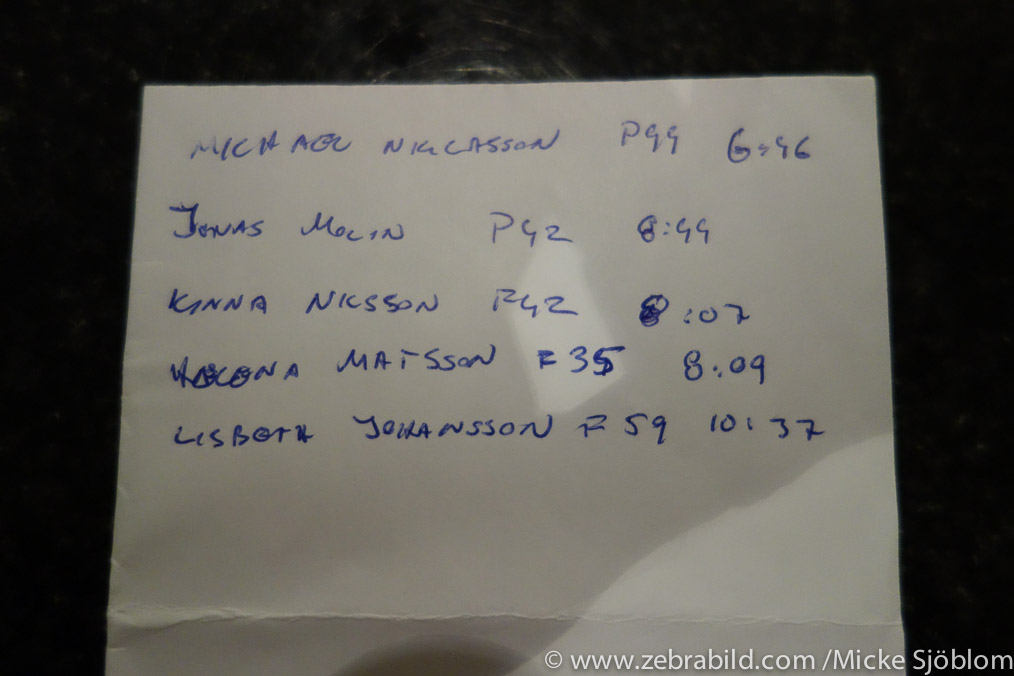 MICHAEL NICLASSON P44 6:46
JONAS MOLIN P42 8:44
KINNA NILSSON F42 8:07
HELENA MATSSON F35 8:09
LISBETH JOHANSSON F59 10:37
© www.zebrabild.com /Micke Sjöblom